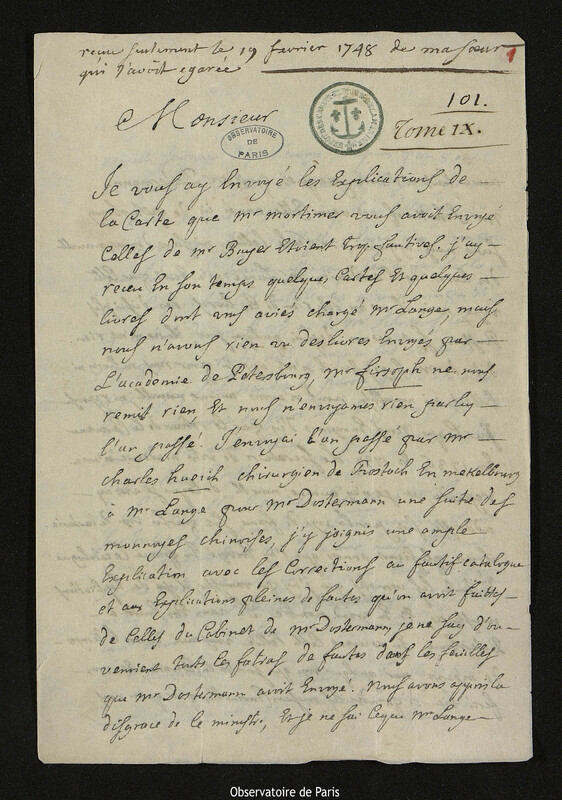 recue seulement le 19 février 1748 de ma Soeur
qui l'avoit egarée
1
101.
Tome IX.
Monsieur
OBSERVATOIRE
DE
PARIS
Je vous ay Envoyé les Explications de
la Carte que mr mortimer vous avoit Envoyé
Celles de mr Bayer Etoient trop fautives. j'ay
receu En son temps quelques Cartes Et quelques
livres dont vous aviés chargé mr Lange, mais
nous n'avons rien vu des livres Envoyes par
L'academie de Petersbourg, mr firsoph ne nous
remit rien, Et nous n'envoyames rien par luy
l'an passé. J'envoyai l'an passé par mr
charles chirurgien de Rostoch En mekelbourg
à mr Lange pour mr Dostermann une suite des
monnoyes chinoises, j'y joignis une ample
Explication avec les Corrections au fautif catalogue
et aux Explications pleines de fautes qu'on avoit faittes
de Celles du Cabinet de mr Dostermann, je ne say d'ou
venoient touts les fatras de fautes dans les feuilles
que mr Dostermann avoit Envoyé. Nous avons appris la
disgrace de le ministre, Et je ne sai ce que mr Lange
Observatoire de Paris